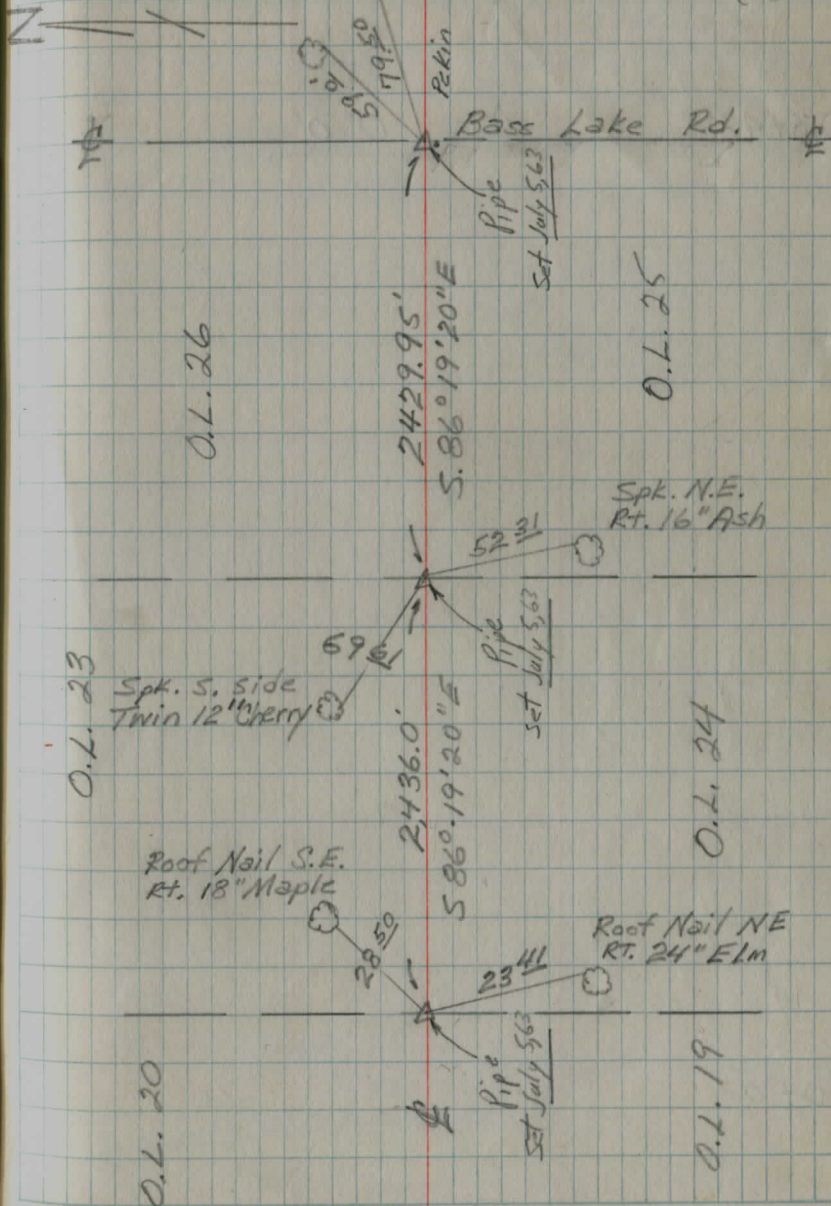 N
79.50
59.16'
Pekin
Bass Lake Rd.
Pipe
Set July 5,63
O.L. 26
2429.95'
S.86°19'20"E
O.L. 25
Spk. N.E.
Rt. 16" Ash
52 31
Pipe
set July 5,63
69
O.L. 23
Spk. S. side
Twin 12" Cherry
2,436.0'
S 86°19'20"E
O.L. 24
Roof Nail S.E.
Rt. 18" Maple
28 50
Roof Nail NE
RT. 24" Elm
23 41
Pipe
set July 5,63
O.L. 20
O.L. 19